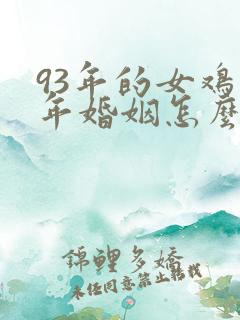 93年的女鸡
年婚姻怎麼
錦鲤多娇
未经同意禁止转载